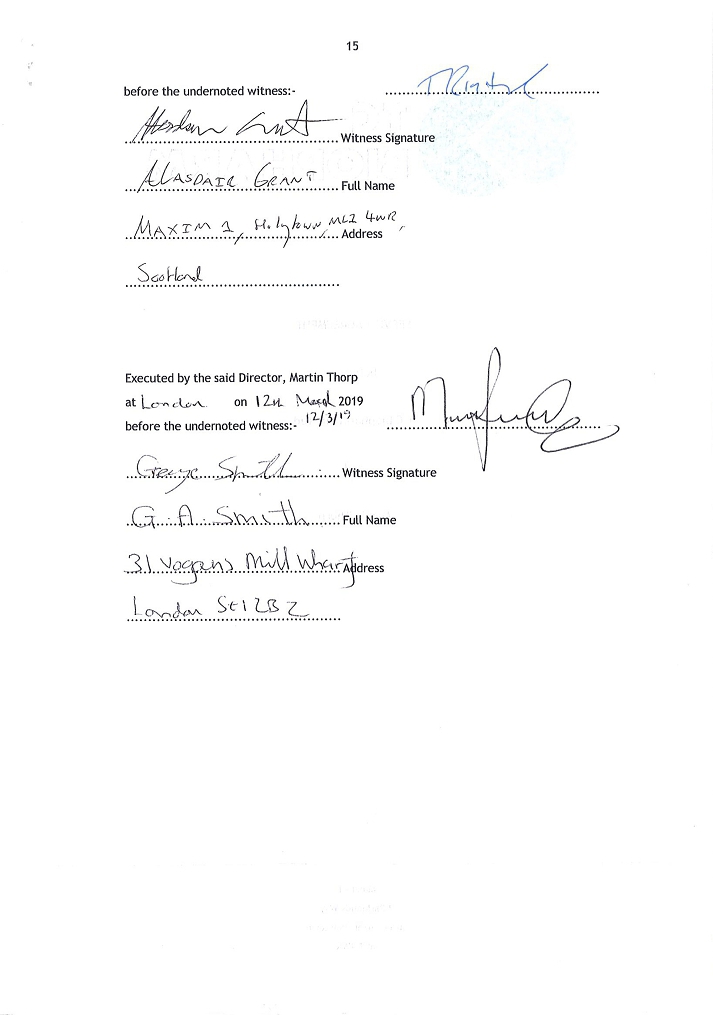 15
before the undernoted witness:-
Witness Signature
ALASDAIR GRANT Full Name
MAXIM 1, Holytown ML1 4WR, Address
Scotland
Executed by the said Director, Martin Thorp
at London on 12th March 2019
before the undernoted witness:- 12/3/19
George Smith Witness Signature
G. A. Smith Full Name
31 Vogans Mill Wharf Address
London SE1 2BZ